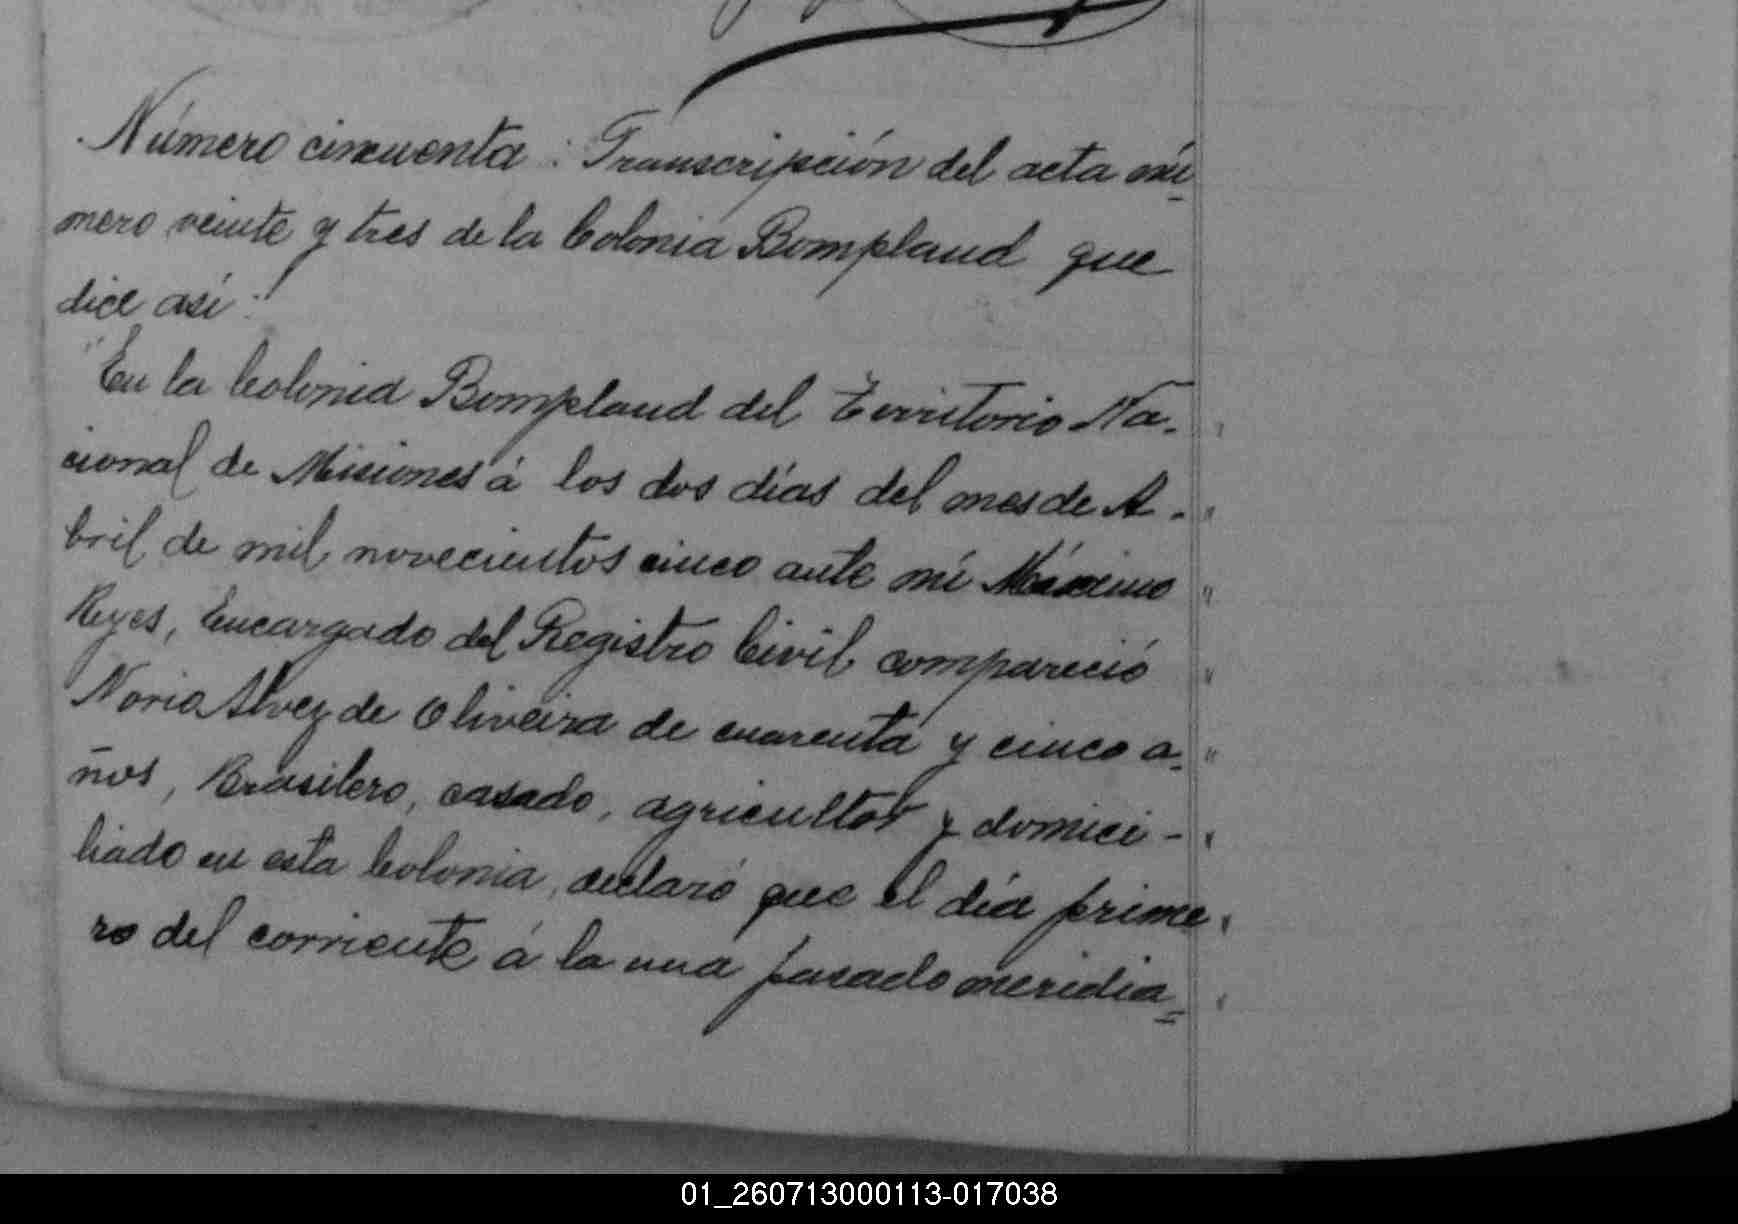 Número cincuenta : Transcripción del acta nú-
mero veinte y tres de la Colonia Bompland que
dice así :
"En la Colonia Bompland del Territorio Na-
cional de Misiones á los dos días del mes de A-
bril de mil novecientos cinco ante mí Máximo
Reyes, Encargado del Registro Civil compareció
Norio Alvez de Oliveira de cuarenta y cinco a-
ños, Brasilero, casado, agricultor y domici-
liado en esta Colonia, declaró que el día prime
ro del corriente á la una pasado meridia=
01_260713000113-017038